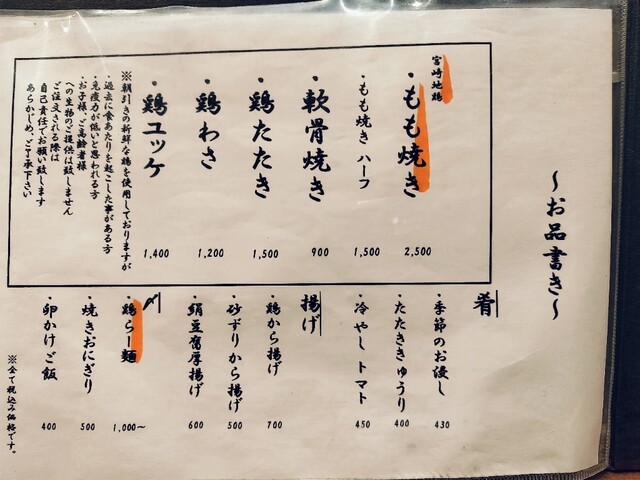 ～お品書き～
宮崎地鶏
・もも焼き 2,500
・もも焼き ハーフ 1,500
・軟骨焼き 900
・鶏たたき 1,500
・鶏わさ 1,200
・鶏ユッケ 1,400
※朝引きの新鮮な鶏を使用しておりますが
・過去に食あたりを起こした事がある方
・免疫力が低いと思われる方
・お子様、ご高齢者様
への生物のご提供は致しません
ご注文される際は
自己責任でお願い致します
あらかじめ、ご了承下さい
肴
・季節のお浸し 430
・たたききゅうり 400
・冷やしトマト 450
揚げ
・鶏から揚げ 700
・砂ずりから揚げ 500
・絹豆腐厚揚げ 600
〆
・鶏らー麺 1,000～
・焼きおにぎり 500
・卵かけご飯 400
※全て税込み価格です。